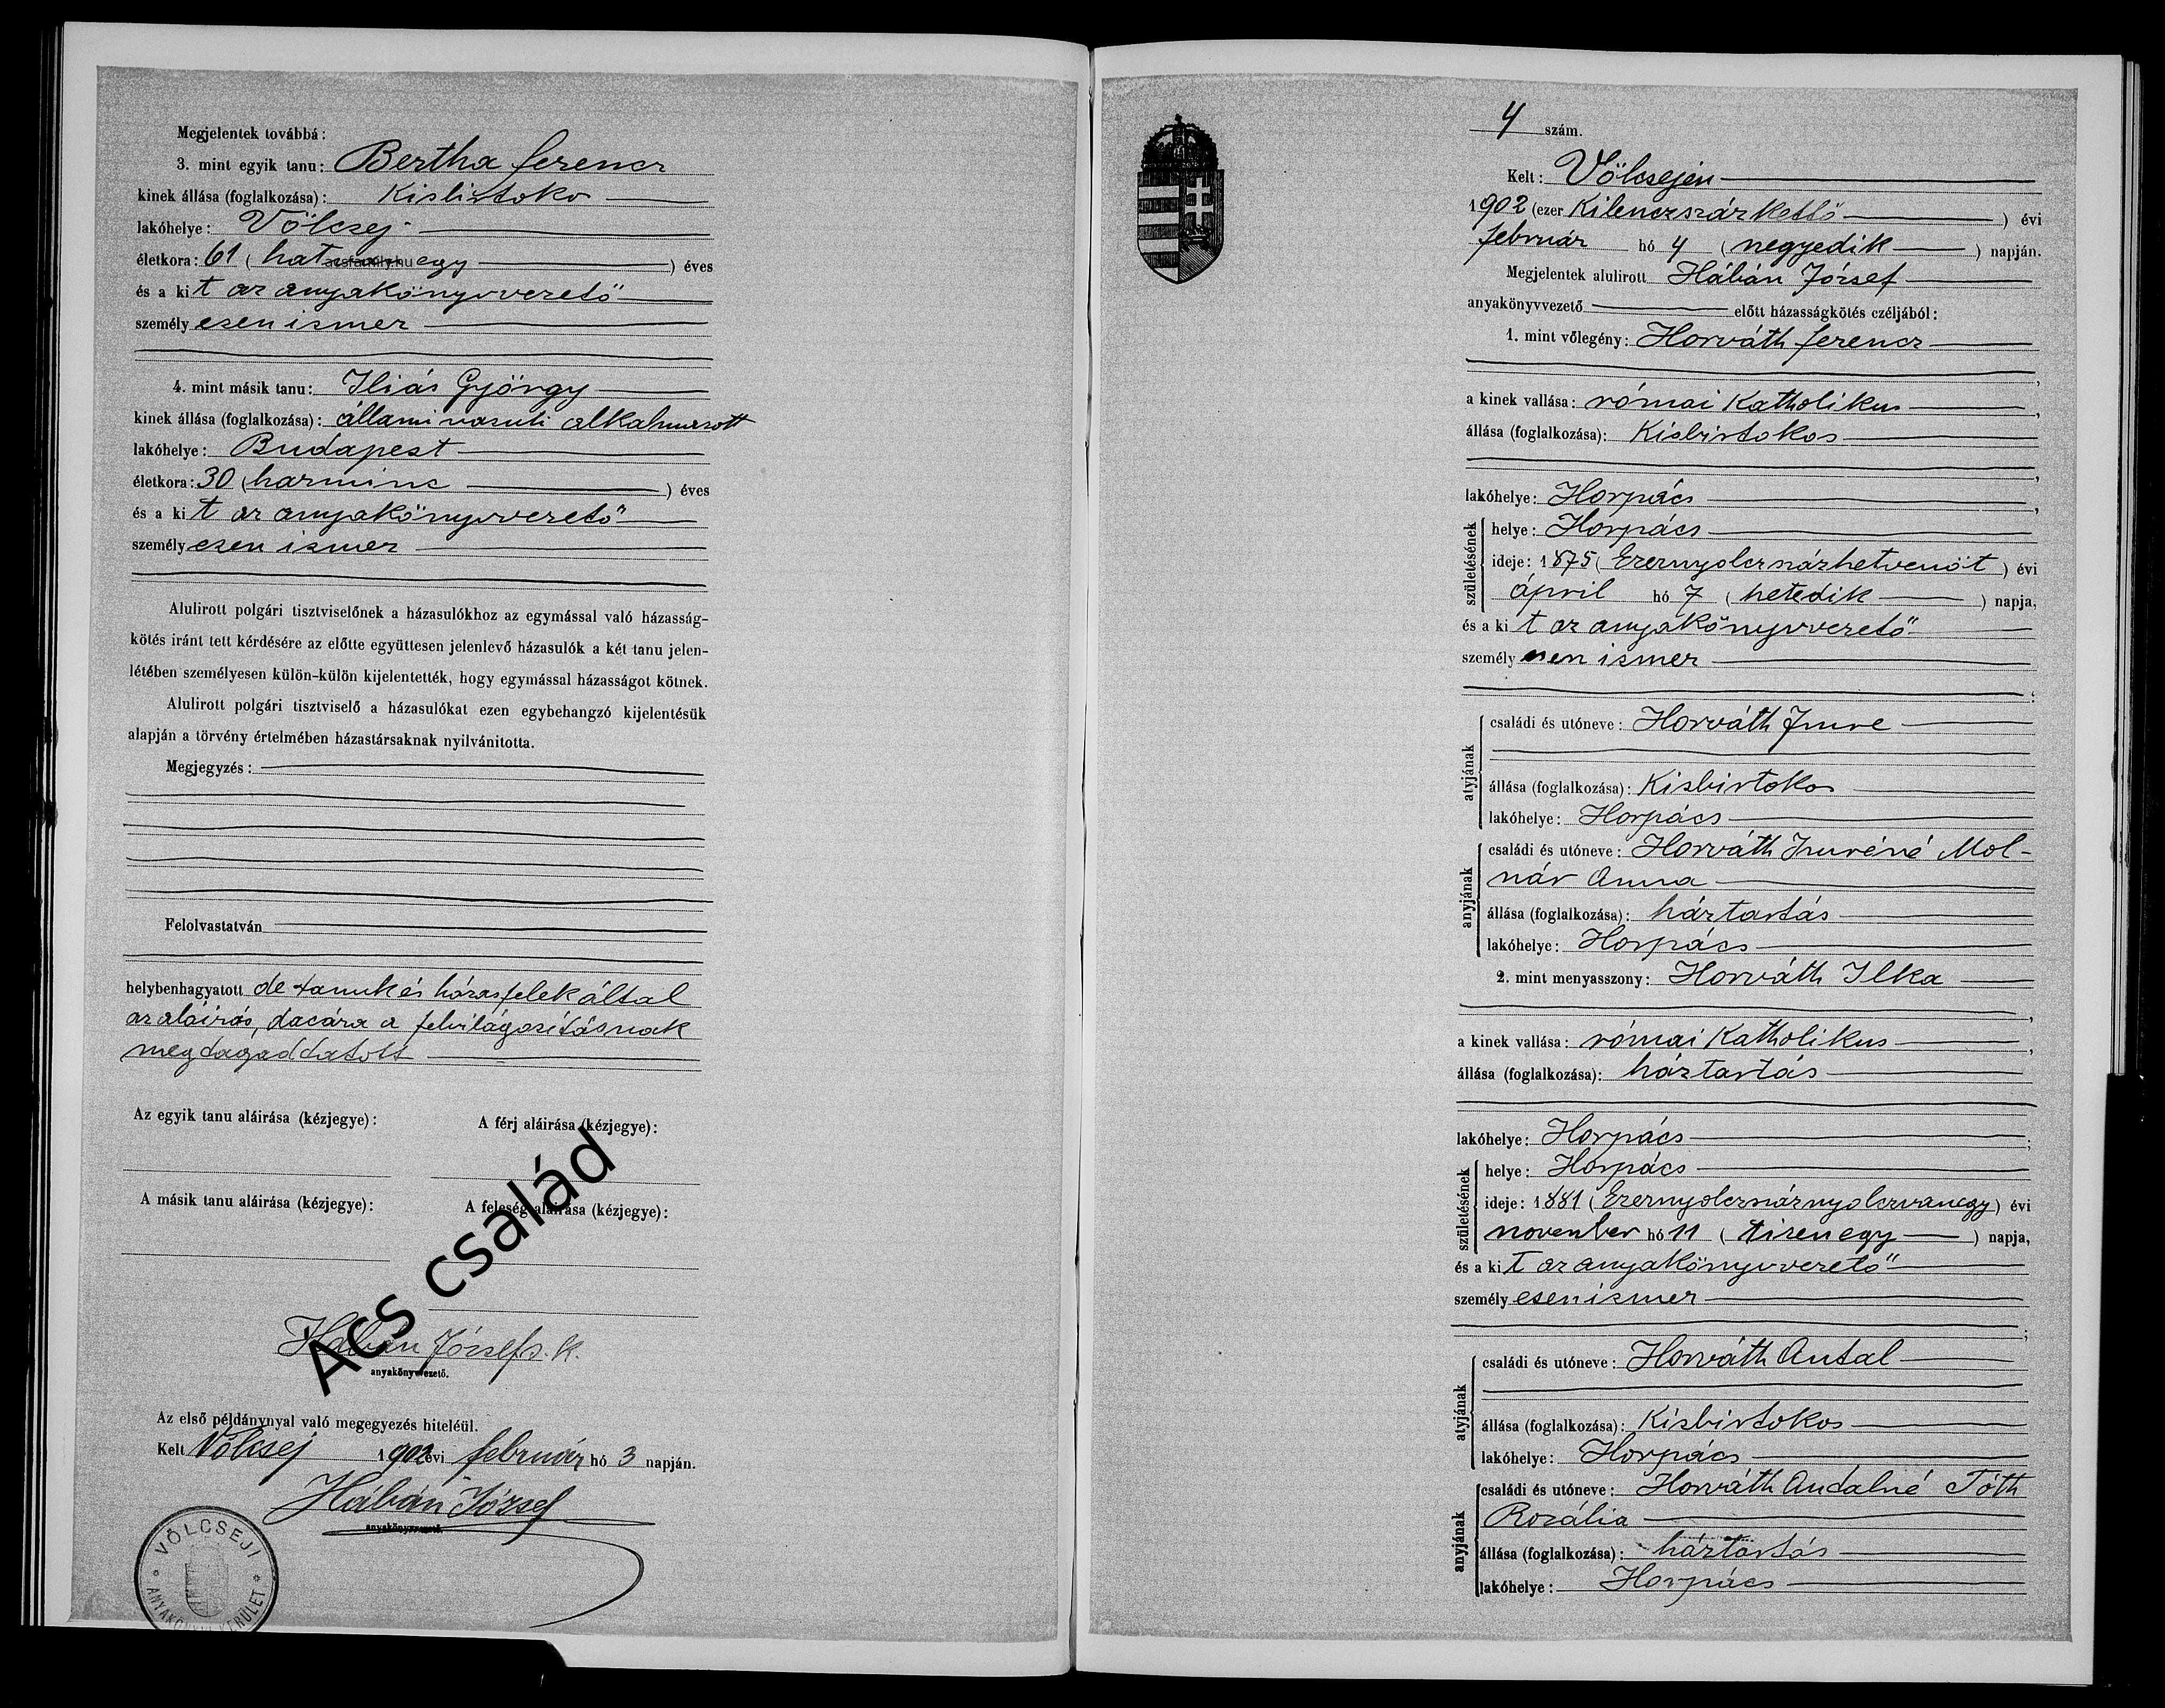 Megjelentek továbbá:
3. mint egyik tanu: Bertha ferencz
kinek állása (foglalkozása): Kisbirtokos
lakóhelye: Völcsej
életkora: 61 (hatvanegy) éves
acsfamily.hu
és a kit az anyakönyvvezető
személyesen ismer
4. mint másik tanu: Iliás György
kinek állása (foglalkozása): állami vasuti alkalmazott
lakóhelye: Budapest
életkora: 30 (harmincz) éves
és a kit az anyakönyvvezető
személyesen ismer
Alulirott polgári tisztviselőnek a házasulókhoz az egymással való házasság-
kötés iránt tett kérdésére az előtte együttesen jelenlevő házasulók a két tanu jelen-
létében személyesen külön-külön kijelentették, hogy egymással házasságot kötnek.
Alulirott polgári tisztviselő a házasulókat ezen egybehangzó kijelentésük
alapján a törvény értelmében házastársaknak nyilvánitotta.
Megjegyzés:
Felolvastatván
helybenhagyatott de tanuk és házasfelek által
az aláirás, dacára a felvilágosításnak
megtagadtatott
Az egyik tanu aláirása (kézjegye): A férj aláirása (kézjegye):
A másik tanu aláirása (kézjegye): A feleség aláirása (kézjegye):
Ács család
Hábán József s. k.
anyakönyvvezető.
Az első példánynyal való megegyezés hiteléül.
Kelt Völcsej 1902 évi február hó 3 napján.
Hábán József
anyakönyvvezető.
VÖLCSEJI
ANYAKÖNYVI KERÜLET
4 szám.
Kelt: Völcsejen
1902 (ezer Kilenczszázkettő) évi
február hó 4 (negyedik) napján.
Megjelentek alulirott Hábán József
anyakönyvvezető előtt házasságkötés czéljából:
1. mint vőlegény: Horváth ferencz
a kinek vallása: római Katholikus,
állása (foglalkozása): Kisbirtokos
lakóhelye: Horpács,
születésének
helye: Horpács
ideje: 1875 (Ezernyolczszázhetvenöt) évi
ápril hó 7 (hetedik) napja,
és a kit az anyakönyvvezető
személyesen ismer
atyjának
családi és utóneve: Horváth Imre
állása (foglalkozása): Kisbirtokos
lakóhelye: Horpács
anyjának
családi és utóneve: Horváth Imréné Mol-
nár Anna
állása (foglalkozása): háztartás
lakóhelye: Horpács
2. mint menyasszony: Horváth Ilka
a kinek vallása: római Katholikus,
állása (foglalkozása): háztartás
lakóhelye: Horpács;
születésének
helye: Horpács
ideje: 1881 (Ezernyolczszáznyolczvanegy) évi
november hó 11 (tizenegy) napja,
és a kit az anyakönyvvezető
személyesen ismer
atyjának
családi és utóneve: Horváth Antal
állása (foglalkozása): Kisbirtokos
lakóhelye: Horpács
anyjának
családi és utóneve: Horváth Antalné Tóth
Rozália
állása (foglalkozása): háztartás
lakóhelye: Horpács